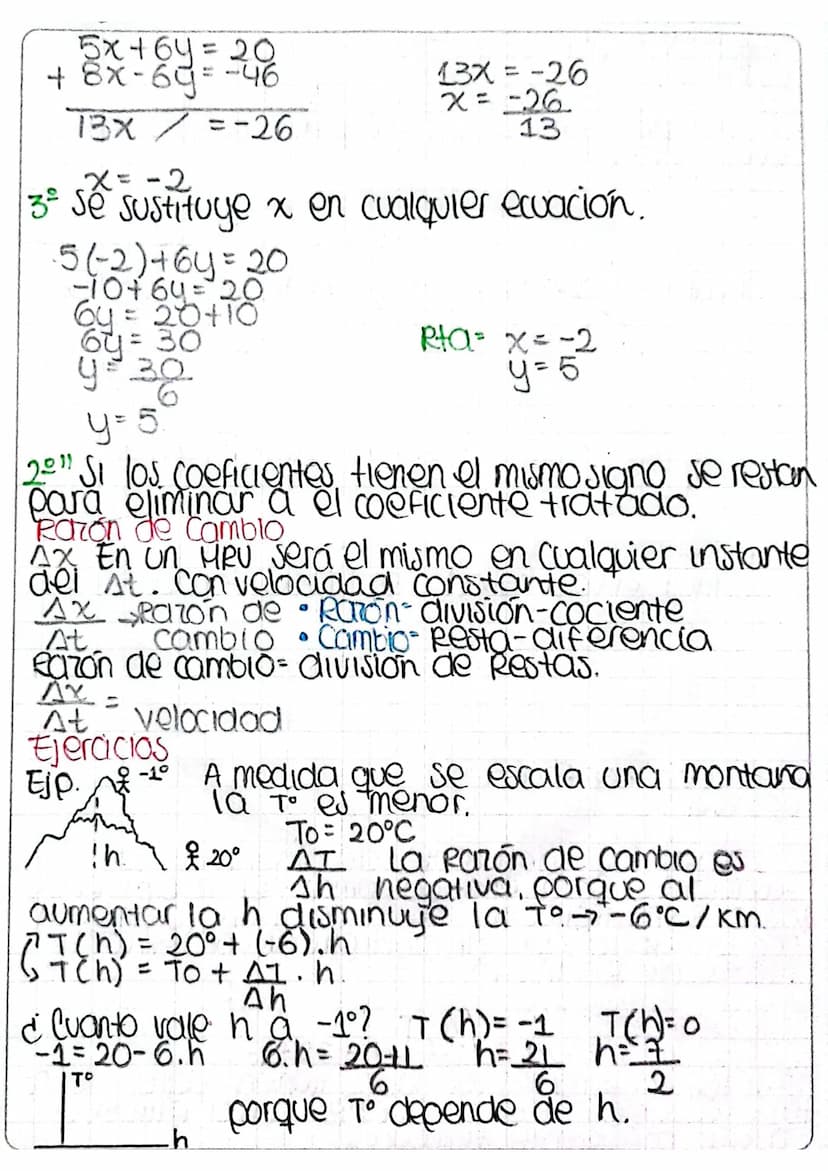 5x+6y = 20
+ 8x-6y = -46
13x / = -26
13x = -26
x = -26
13
x = -2
3º Se sustituye x en cualquier ecuación.
5(-2)+6y = 20
-10+6y = 20
6y = 20+10
6y = 30
y = 30
6
y = 5
Rta= x = -2
y = 5
2º" Si los coeficientes tienen el mismo signo se restan
para eliminar a el coeficiente tratado.
Razón de Cambio
Δx En un MRU será el mismo en cualquier instante
del Δt. Con velocidad constante.
Δx → Razón de • Razón- división-cociente
Δt cambio • Cambio= Resta-diferencia
Razón de cambio= división de Restas.
Δx =
Δt velocidad
Ejercicios
Ejp. -1º A medida que se escala una montaña
la Tº es menor.
To = 20ºC
h 20º ΔT La Razón de cambio es
Δh negativa, porque al
aumentar la h disminuye la Tº → -6ºC/km.
T(h) = 20º + (-6).h
T(h) = To + ΔT . h
Δh
¿Cuanto vale h a -1º? T(h)= -1 T(h)= 0
-1 = 20-6.h 6.h = 20+1 h= 21 h= 7
6 6 2
Tº
porque Tº depende de h.
h